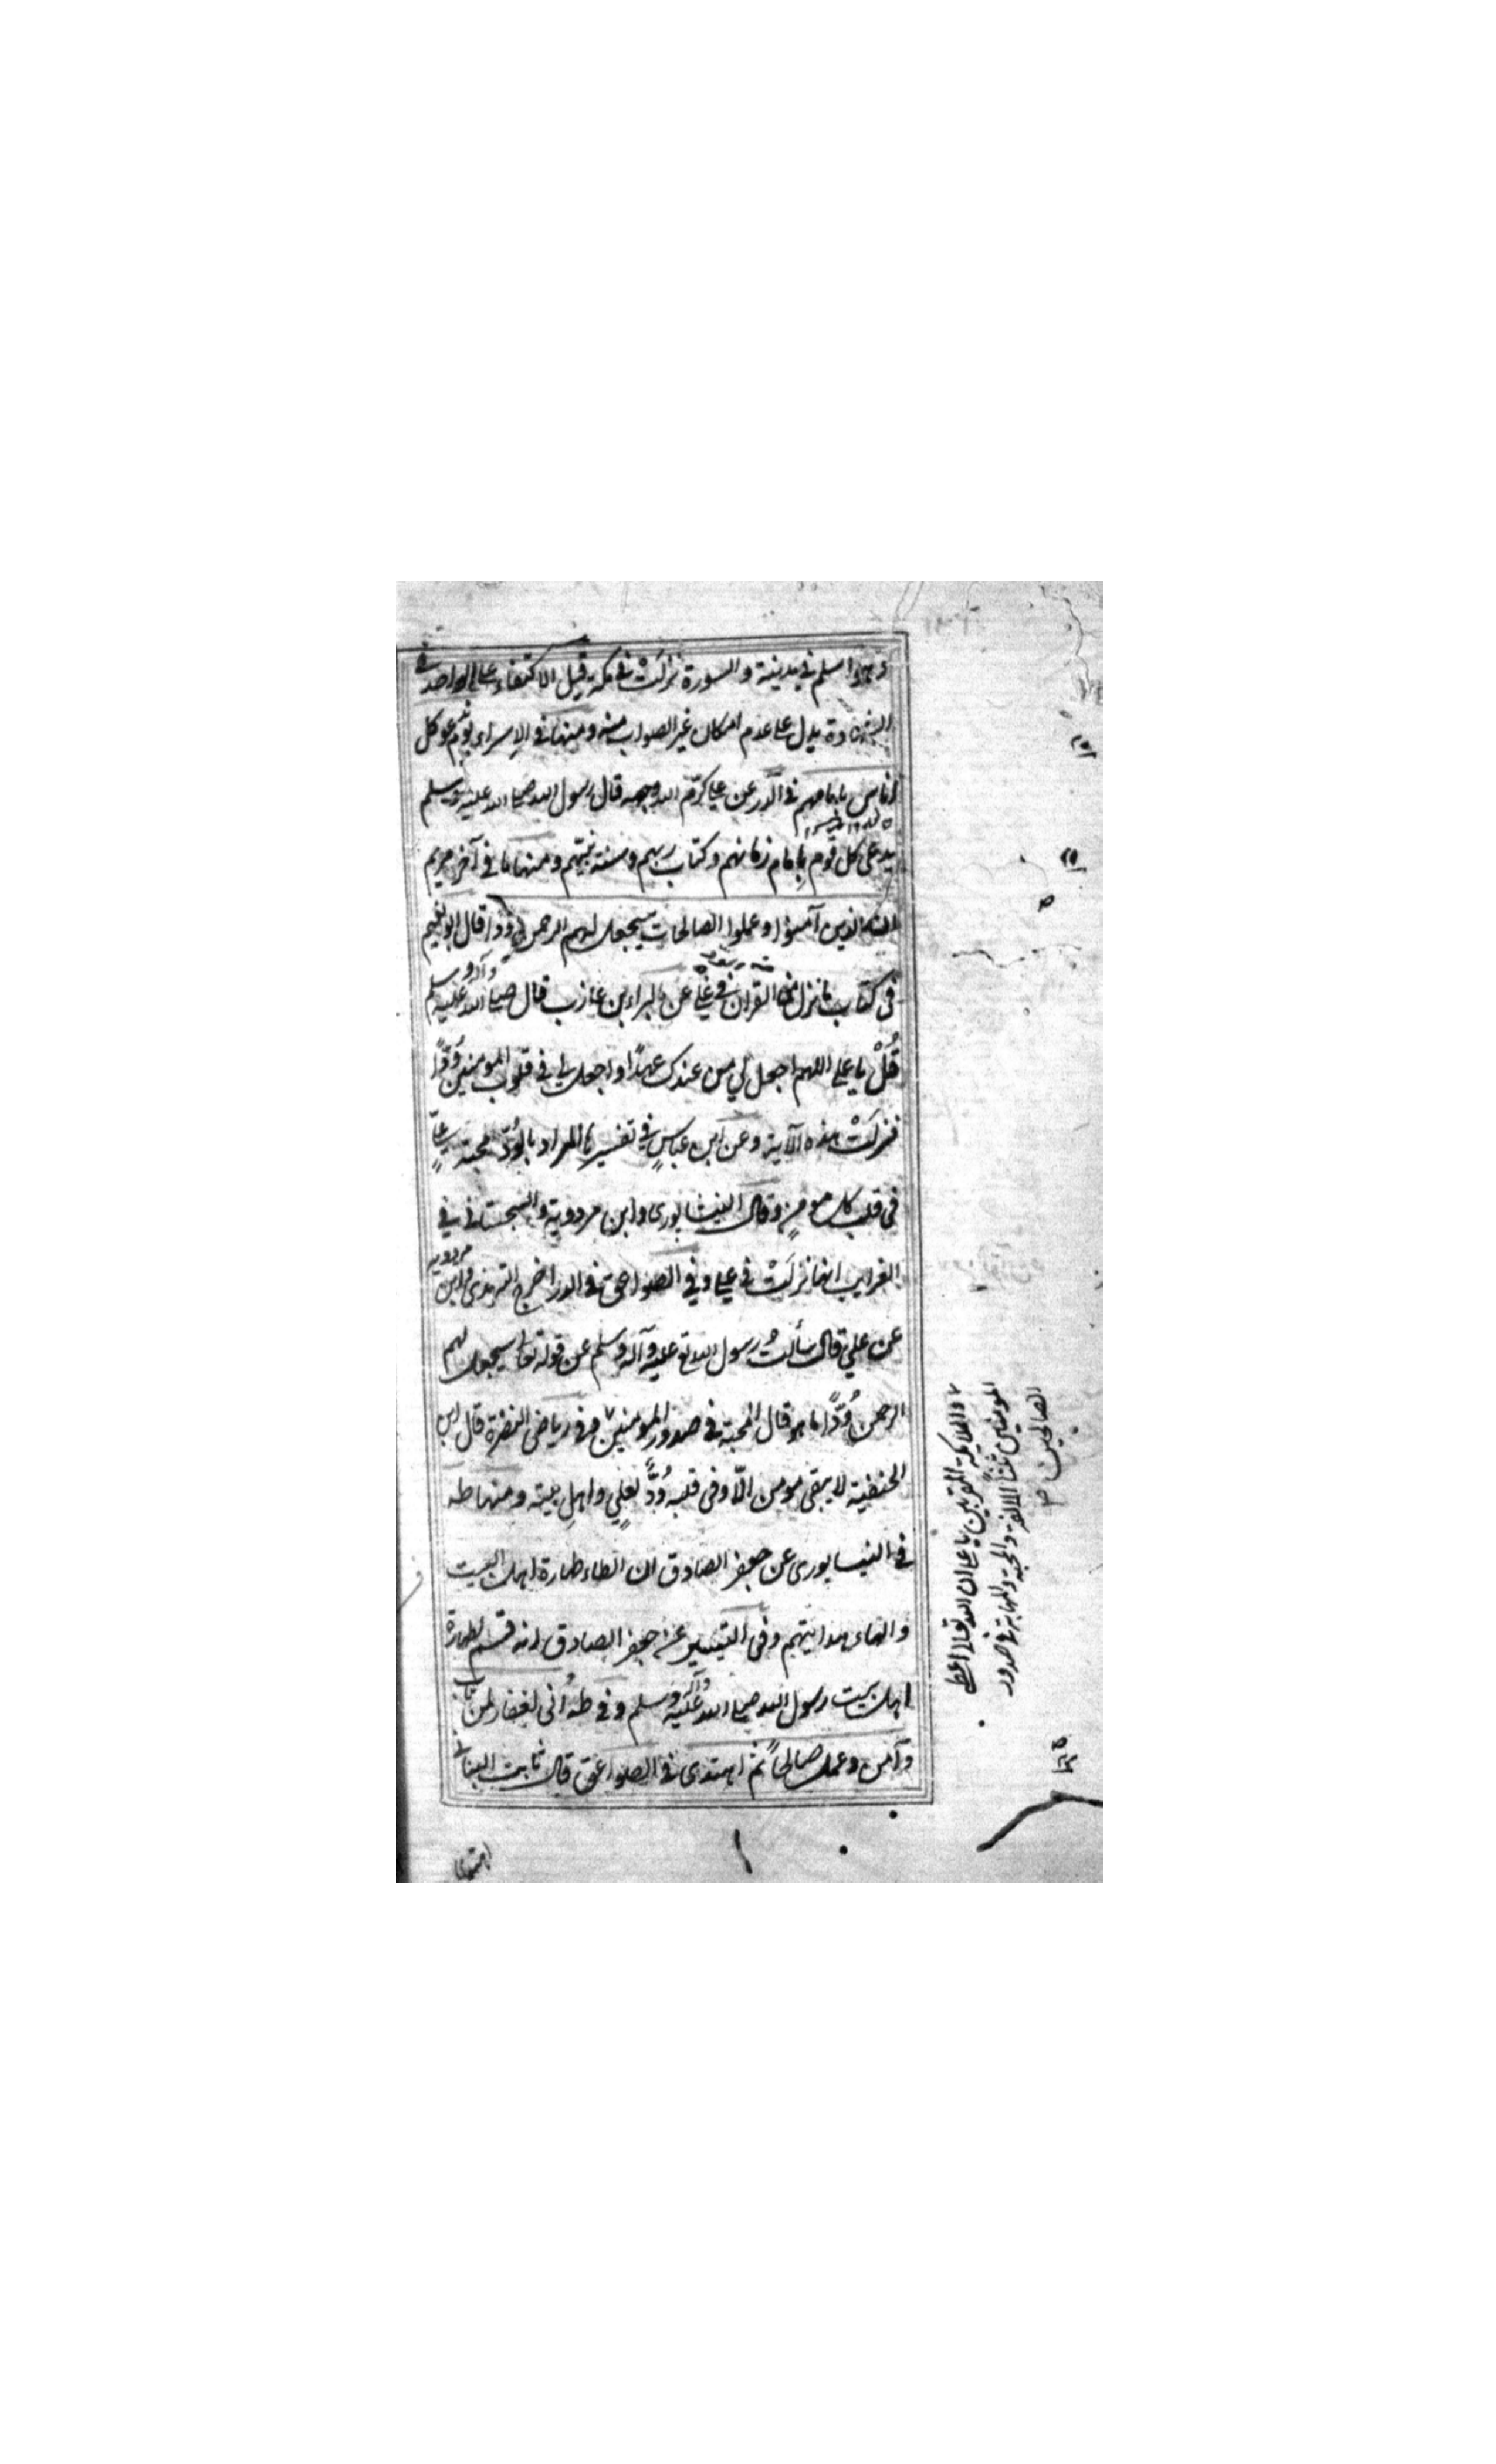 وهو اسلم في مدينة والسورة نزلت في مكة قيل الاكتفاء على الواحد في
الشهادة يدل على عدم امكان غير الصواب منه ومنها في الاسراء يوم ندعو كل
اناس بامامهم في الدر عن علي كرم الله وجهه قال رسول الله صلى الله عليه وسلم
يدعى كل قوم بامام زمانهم وكتاب ربهم وسنة نبيهم ومنها ما في آخر مريم
ان الذين آمنوا وعملوا الصالحات سيجعل لهم الرحمن وُدّا قال ابو نعيم
في كتاب ما نزل من القرآن في علي عن البراء بن عازب قال صلى الله عليه وآله وسلم
قُلْ يا علي اللهم اجعل لي من عندك عهدًا واجعل لي في قلوب المومنين وُدًّا
فنزلَتْ هذه الآية وعن ابن عباسٍ في تفسيرها المراد بالوُدّ محبة عليٍّ
في قلب كل مومنٍ وقال النيشابوري وابن مردوية والسجستاني في
الغرايب انها نزلَتْ في علي وفي الصواعق في الدر اخرج الترمذي وابن مردويه
عن علي قال سألتُ رسول الله عليه وآله وسلم عن قوله تعالى سيجعل لهم
الرحمن وُدًّا ما هو قال المحبة في صدور المومنين وفي رياض النضرة قال ابن
الحنفية لا يبقى مومن الّا وفي قلبه وُدٌّ لعليٍ واهلِ بيته ومنها طه
في النيسابوري عن جعفر الصادق ان الطاء طهارة اهل البيت
والهاء هدايتهم وفي التيسير عن جعفر الصادق انه قسم بطهارة
اهل بيت رسول الله صلى الله عليه وآله وسلم وفي طه اني لغفار لمن تاب
وآمن وعمل صالحًا ثم اهتدى في الصواعق قال ثابت البناني
والملايكة المقربين يا علي ان الله تعالى اعطى
المومنين ثلثا الالفة والمحبة والمهابة في صدور
الصالحين
اهتدى